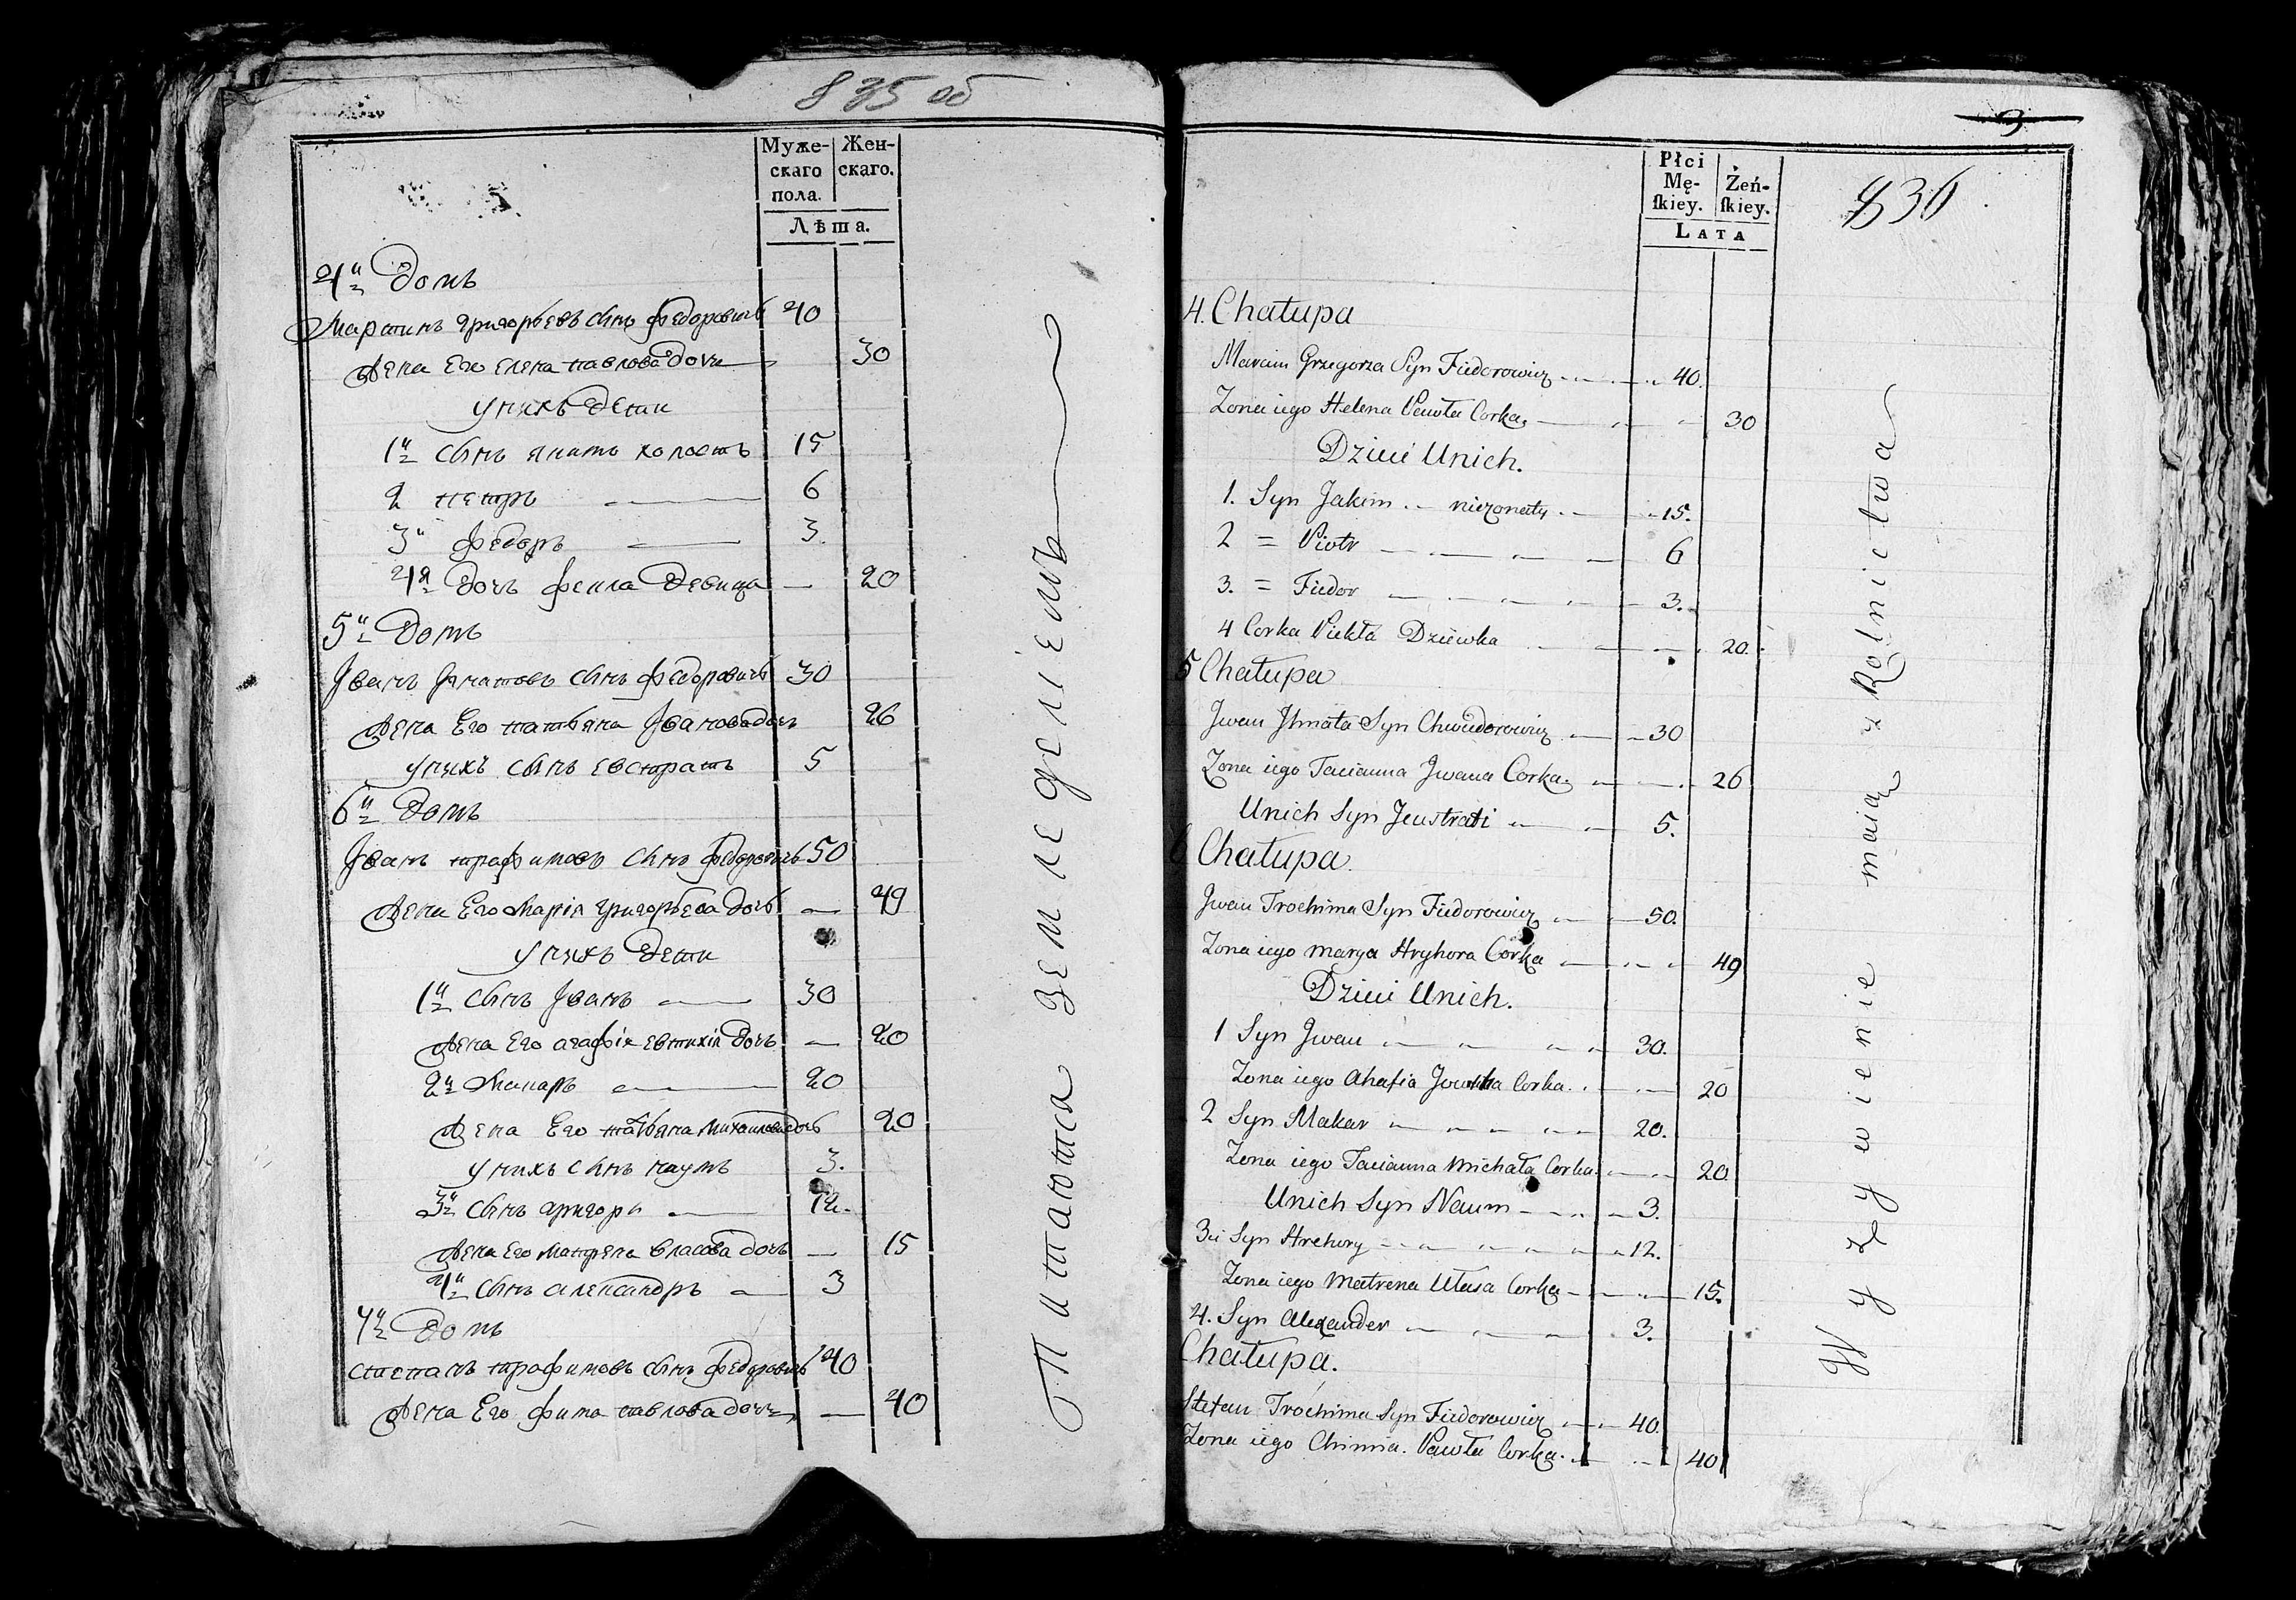 835 об
Муже-
скаго
пола.
Жен-
скаго.
Лѣта.
4й Домъ
Мартинъ Григорьевъ сынъ Федоровичъ 40
Жена Его Елена Павлова Дочь 30
У нихъ Дети
1й сынъ Якимъ холостъ 15
2 Петръ 6
3й Федоръ 3.
4я Дочь Фекла Девица 20
5й Домъ
Іванъ Игнатовъ сынъ Федоровичъ 30
Жена Его Татьяна Іванова дочь 26
У нихъ сынъ Евстратъ 5
6й Домъ
Іванъ Трафимовъ сынъ Федоровичъ 50
Жена Его Марія Григорьева Дочь 49
У нихъ Дети
1й сынъ Іванъ 30
Жена Его Агафія Евтихія Дочь 20
2й Макаръ 20
Жена Его Татьяна Михайлова дочь 20
У нихъ сынъ Наумъ 3.
3й сынъ Григори 12.
Жена Его Матрена Власова дочь 15
4й сынъ Александръ 3
7й Домъ
Степанъ Трафимовъ сынъ Федоровичъ 40
Жена Его Фима Павлова дочь 40
Питаются земледеліемъ
3
836
Płci
Mę-
ſkiey.
Żeń-
ſkiey.
LATA
4. Chałupa
Marcin Grzegorza Syn Fiedorowicz 40.
Zona iego Helena Pawła Corka 30
Dzieci Unich.
1. Syn Jakim nieżonaty 15.
2 = Piotr 6
3. = Fiedor 3.
4 Corka Fiekła Dziewka 20.
5 Chałupa
Jwan Jhnata Syn Chwiedorowicz 30
Zona iego Tacianna Jwana Corka 26
Unich Syn Jeustrati 5.
6 Chałupa.
Jwan Trochima Syn Fiedorowicz 50.
Zona iego Marya Hryhora Corka 49
Dzieci Unich.
1 Syn Jwan 30.
Zona iego Ahafia Corka 20
2 Syn Makar 20.
Zona iego Tacianna Michała Corka 20
Unich Syn Naum 3.
3ci Syn Hrehory 12.
Zona iego Matrena Ułasa Corka 15.
4. Syn Alexander 3.
Chałupa.
Stefan Trochima Syn Fiedorowicz 40.
Zona iego Chimia. Pawła Corka 40
Wyzywienie maią z Rolnictwa